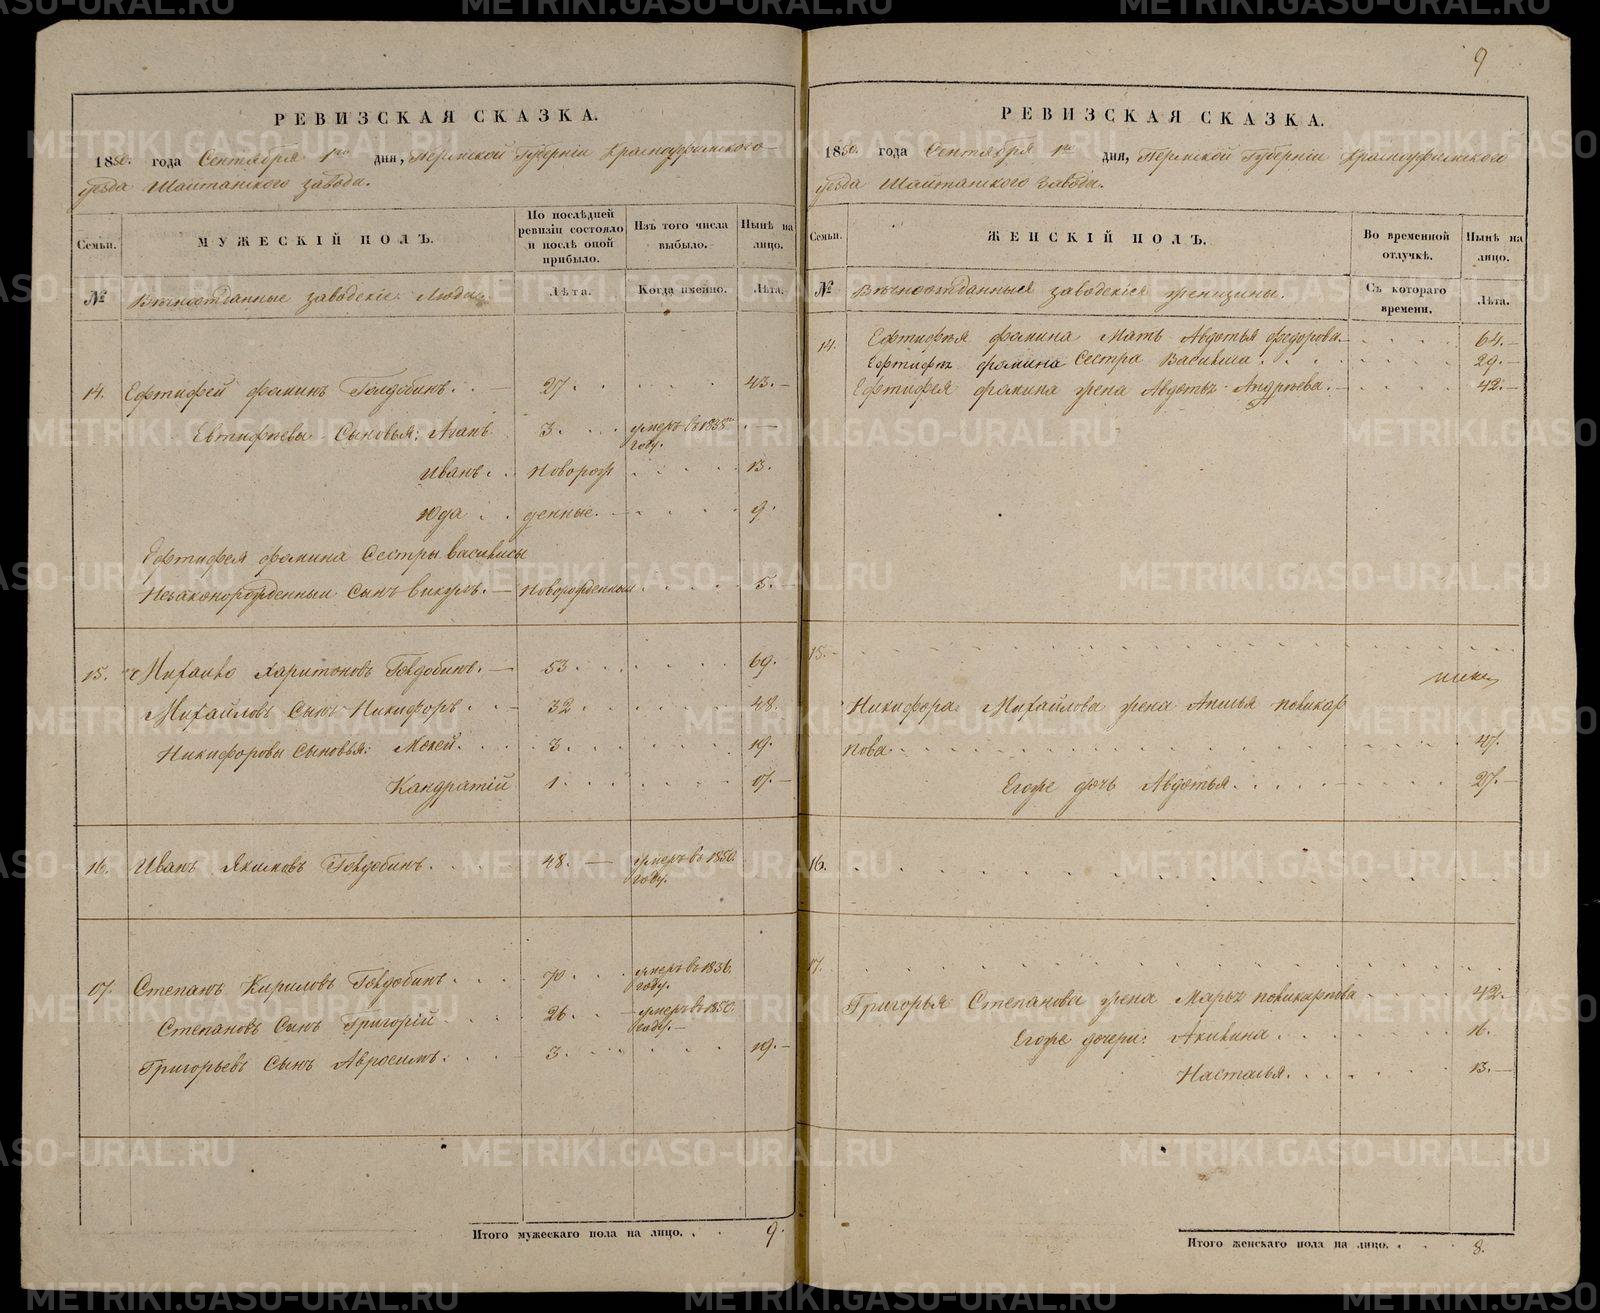 9
РЕВИЗСКАЯ СКАЗКА.
1850. года Сентября 1го дня, Пермской Губерніи Красноуфимского
уезда Шайтанского завода.
Семьи.
МУЖЕСКІЙ ПОЛЪ.
По послѣдней ревизіи состояло и послѣ оной прибыло.
Изъ того числа выбыло.
Нынѣ на лицо.
№
Вечноотданные заводскіе Люди.
Лѣта.
Когда имѣнно.
Лѣта.
14. Ефтифей Фоминъ Голдобинъ. 27. 43.
Евтифѣевы Сыновья: 3. умеръ въ 1838мъ году.
Иванъ. новорож 13.
Юда денные. 9.
Ефтифея Фомина Сестры Василисы
Незаконорожденный Сынъ новорожденный 5.
15. Михайло Харитоновъ Голдобинъ. 53. 69.
Михайловъ Сынъ Никифоръ 32. 48.
Никифоровы Сыновья: Мокей. 3. 19.
Кандратій 1. 17.
16. Иванъ Якимовъ Голдобинъ. 48. умеръ въ 1850. году.
17. Степанъ Кириловъ Голдобинъ. 70. умеръ въ 1836. году.
Степановъ Сынъ Григорій 26. умеръ въ 1850. году.
Григорьевъ Сынъ Авросимъ. 3. 19.
Итого мужескаго пола на лицо. 9.
РЕВИЗСКАЯ СКАЗКА.
1850. года Сентября 1го дня, Пермской Губерніи Красноуфимского
уезда Шайтанского завода.
Семьи.
ЖЕНСКІЙ ПОЛЪ.
Во временной отлучкѣ.
Нынѣ на лицо.
№
Вечноотданныя заводскіе женщины.
Съ котораго времени.
Лѣта.
14. Ефтифѣя Фомина Мать Авдотья Федорова 64.
Фомина Сестра Василиса 29.
Ефтифея Фомина жена Авдотья Андрѣева. 42.
15.
Никифора Михайлова жена Поликар
пова 47.
Егоже дочь Авдотья. 27.
16.
17.
Григорья Степанова жена Марья Поликарпова 42.
Егоже дочери: Акилина 16.
Насталья. 13.
Итого женскаго пола на лицо. 8.
METRIKI.GASO-URAL.RU